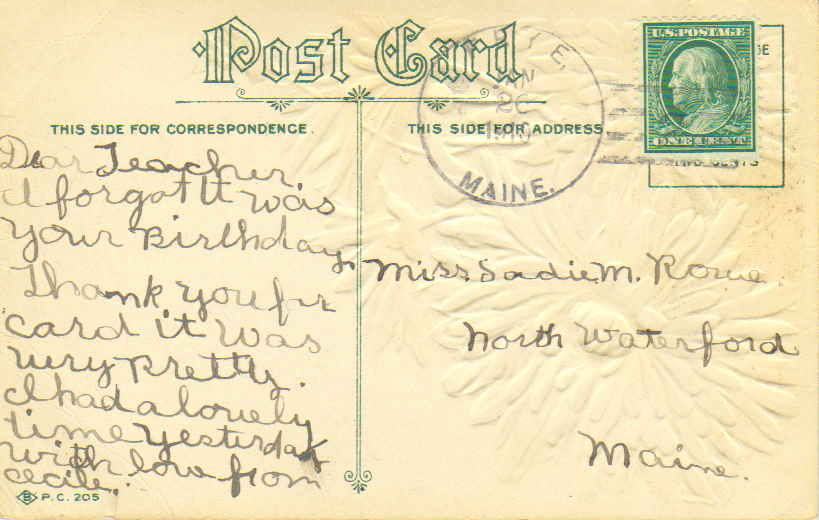 Post Card
THIS SIDE FOR CORRESPONDENCE.
THIS SIDE FOR ADDRESS
U.S. POSTAGE
ONE CENT
YE.
20
1910
MAINE.
Dear Teacher
I forgot It was
your Birthday.
Thank you for
card it was
very pretty.
I had a lovely
time yesterday
with love from
Cecile.
Miss Sadie M. Rowe.
North Waterford
Maine.
B P.C. 205